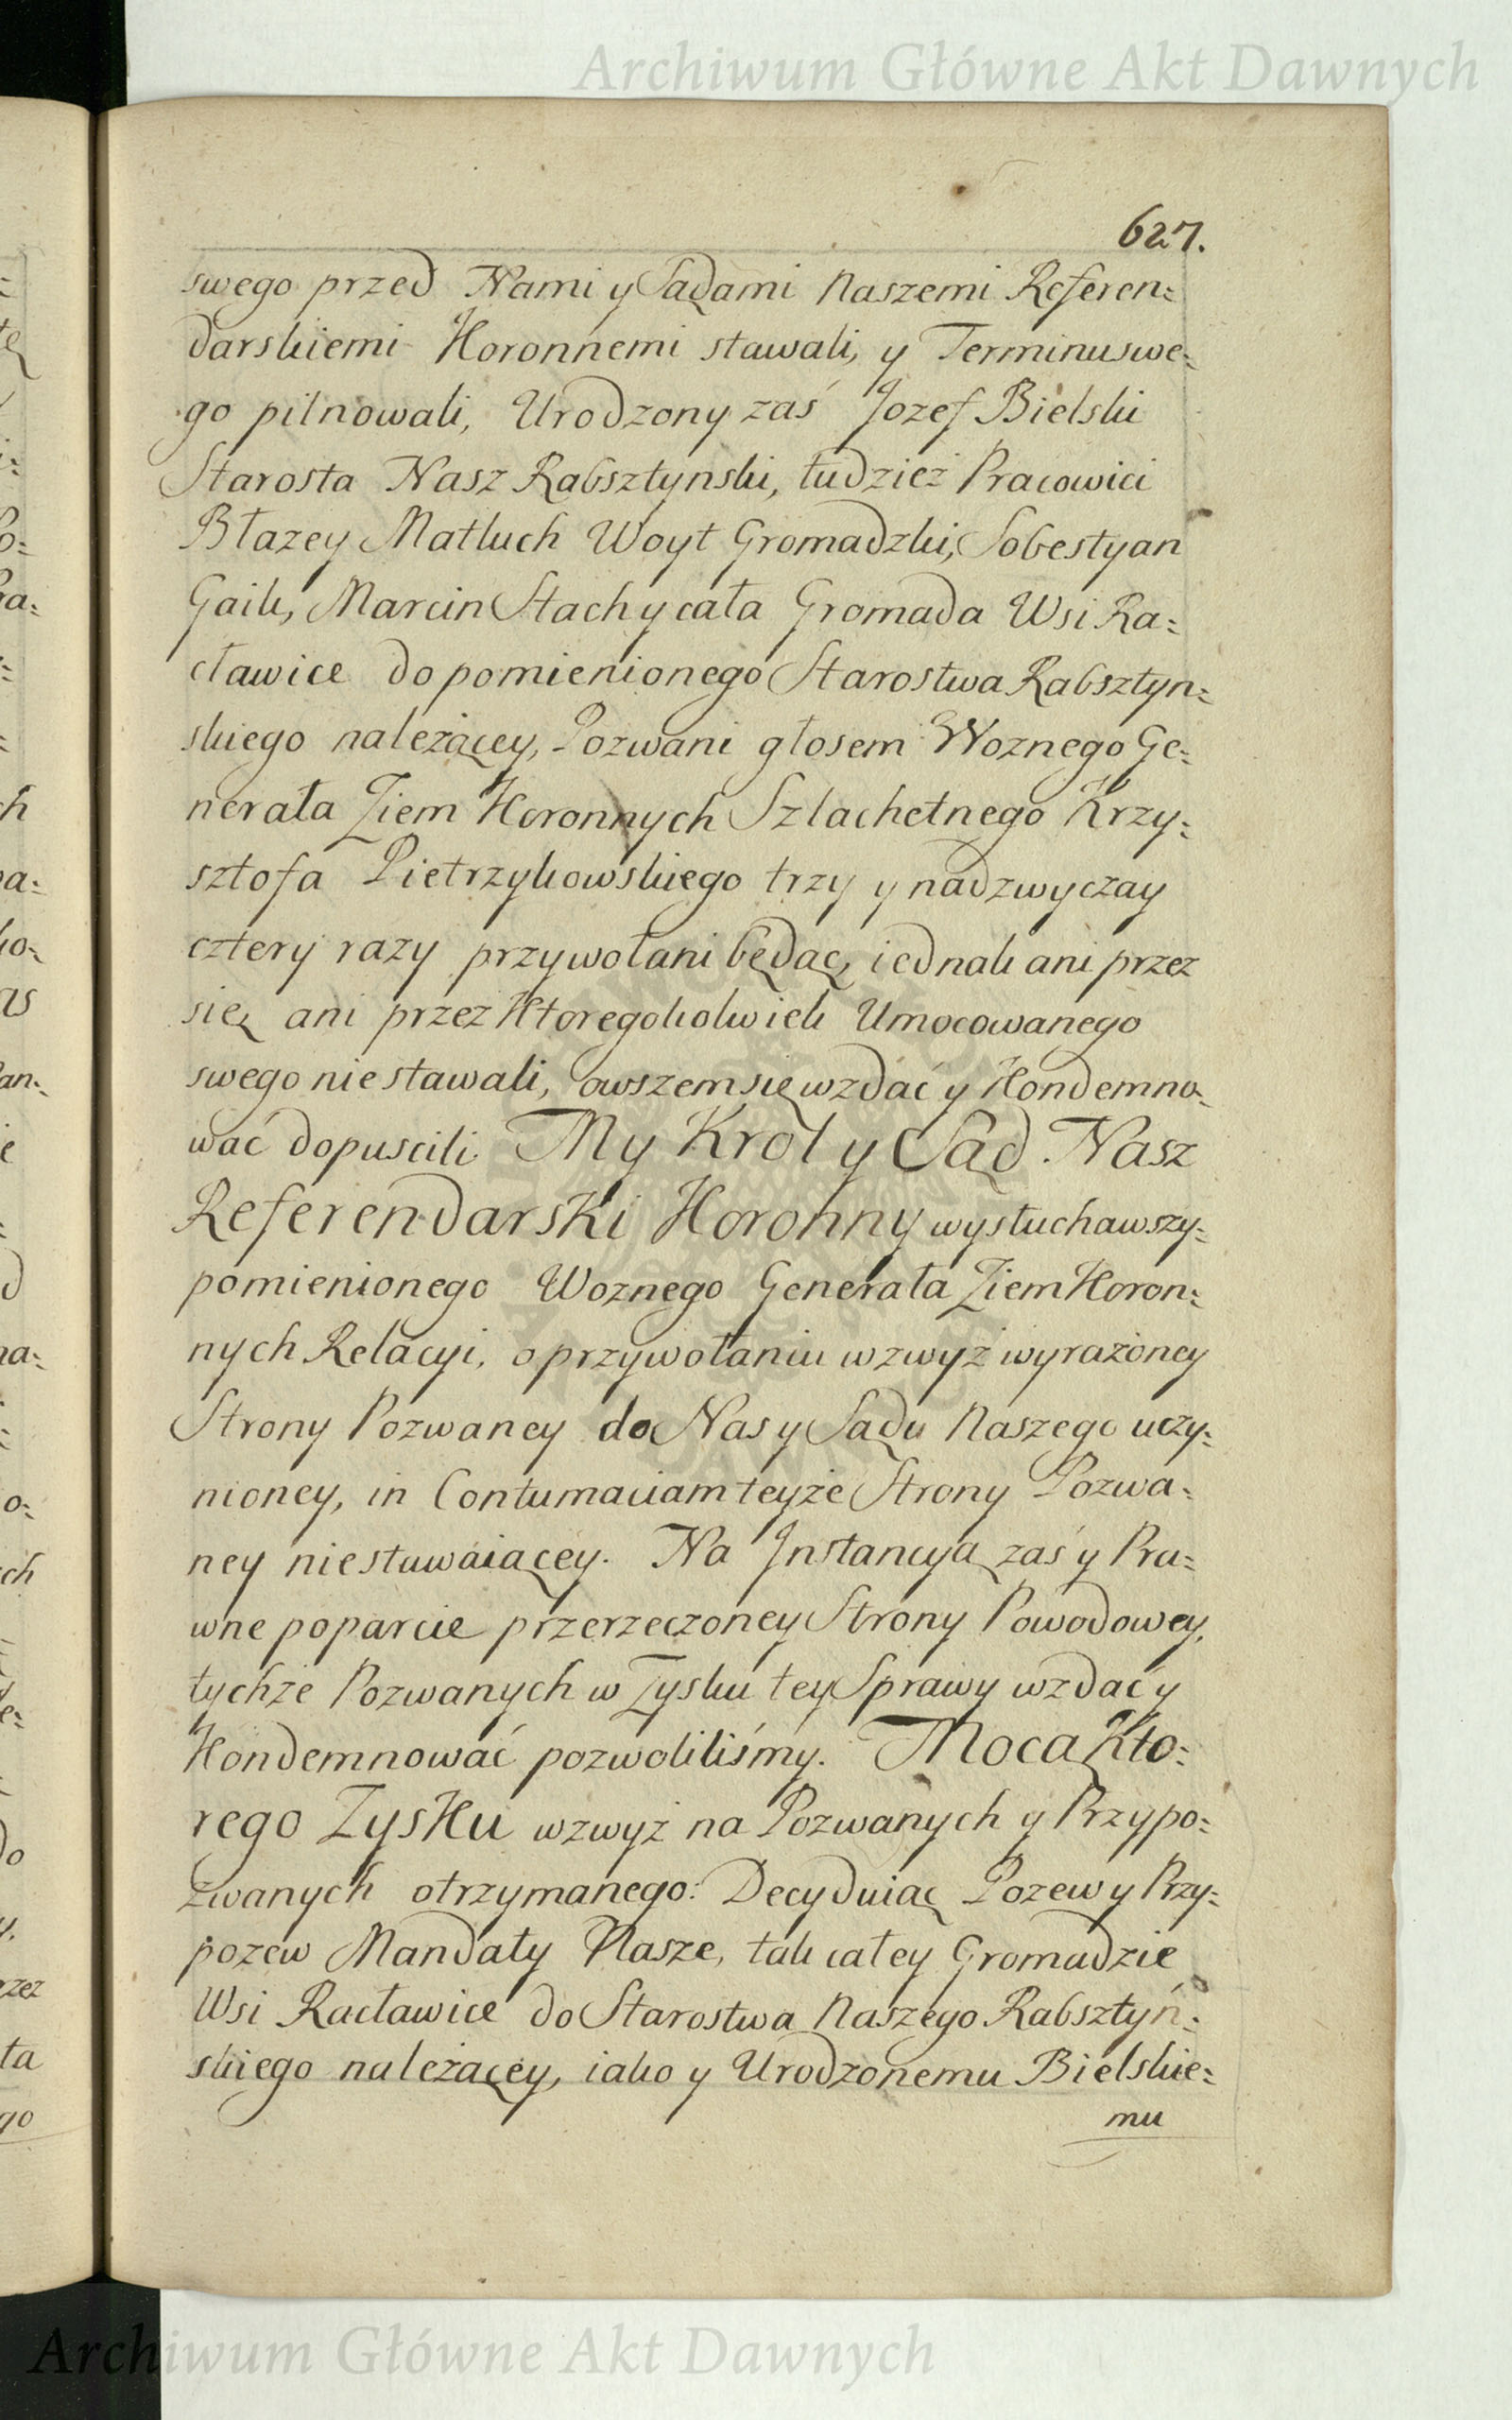 Archiwum Główne Akt Dawnych
627.
swego przed Nami y Sądami Naszemi Referen:
darskiemi Koronnemi stawali, y Terminu swe:
go pilnowali, Urodzony zaś Jozef Bielski
Starosta Nasz Rabsztynski, tudziez Pracowici
Błazey Matluch Woyt Gromadzki, Sobestyan
Gaik, Marcin Stach y cała Gromada Wsi Ra:
cławice do pomienionego Starostwa Rabsztyn:
skiego należącey, Pozwani głosem Woznego Ge:
nerała Ziem Koronnych Szlachetnego Krzy:
sztofa Pietrzykowskiego trzy y nadzwyczay
cztery razy przywołani będąc, iednak ani przez
się, ani przez Ktoregokolwiek Umocowanego
swego nie stawali, owszem się wzdać y Kondemno:
wać dopuscili. My Krol y Sąd Nasz
Referendarski Koronny wysłuchawszy:
pomienionego Woznego Generała Ziem Koron:
nych Relacyi, o przywołaniu wzwyż wyrażoney
Strony Pozwaney do Nas y Sądu Naszego uczy:
nioney, in Contumaciam teyże Strony Pozwa:
ney niestawaiącey. Na Instancyą zaś y Pra:
wne poparcie przerzeczoney Strony Powodowey,
tychże Pozwanych w Zysku tey Sprawy wzdać y
Kondemnować pozwoliliśmy. Mocą Kto:
rego Zysku wzwyż na Pozwanych y Przypo:
zwanych otrzymanego: Decyduiąc Pozew y Przy:
pozew Mandaty Nasze, tak całey Gromadzie
Wsi Racławice do Starostwa Naszego Rabsztyń:
skiego należącey, iako y Urodzonemu Bielskie:
mu
Archiwum Główne Akt Dawnych